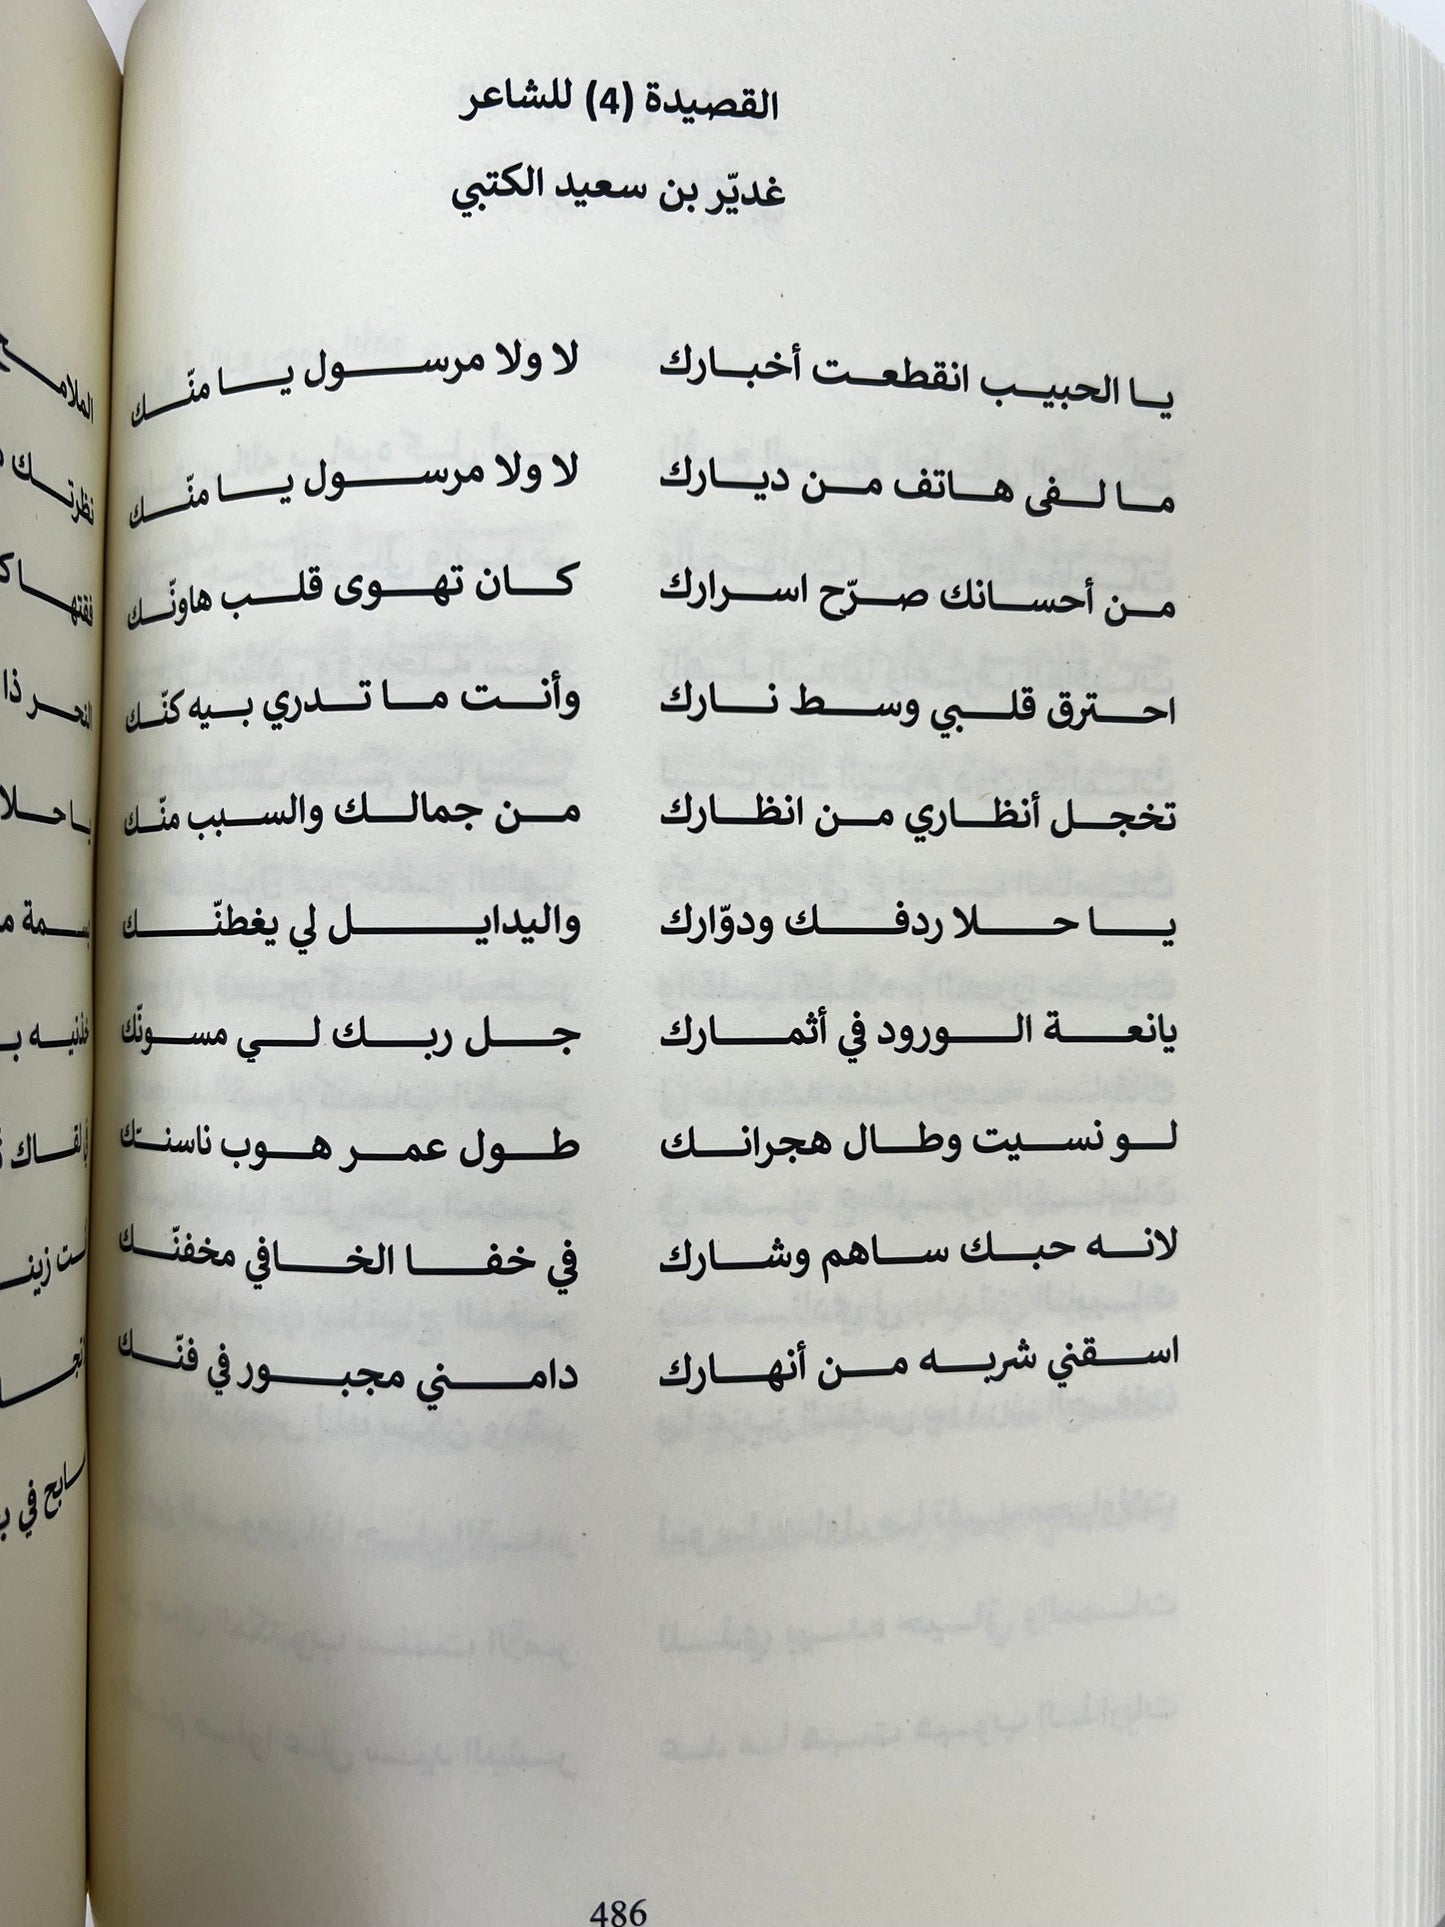 القصيدة (4) للشاعر
غديّر بن سعيد الكتبي
يا الحبيب انقطعت أخبارك لا ولا مرسول يا منّك
ما لفى هاتف من ديارك لا ولا مرسول يا منّك
من أحسانك صرّح اسرارك كان تهوى قلب هاونّك
احترق قلبي وسط نارك وأنت ما تدري بيه كنّك
تخجل أنظاري من انظارك من جمالك والسبب منّك
يا حلا ردفك ودوّارك واليدايل لي يغطنّك
يانعة الورود في أثمارك جل ربك لي مسونّك
لو نسيت وطال هجرانك طول عمر هوب ناسنتك
لانه حبك ساهم وشارك في خفا الخافي مخفنّك
اسقني شربه من أنهارك دامني مجبور في فنّك
486
الملامح
نظرتك
يا حلا
في لقاك
سابح في